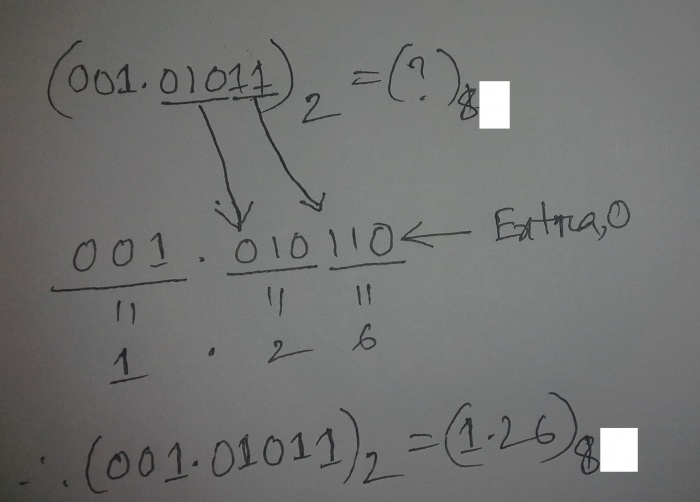 (001.01011)2 = (?)8
001 . 010 110 ← Extra,0
= = =
1 . 2 6
∴ (001.01011)2 = (1.26)8